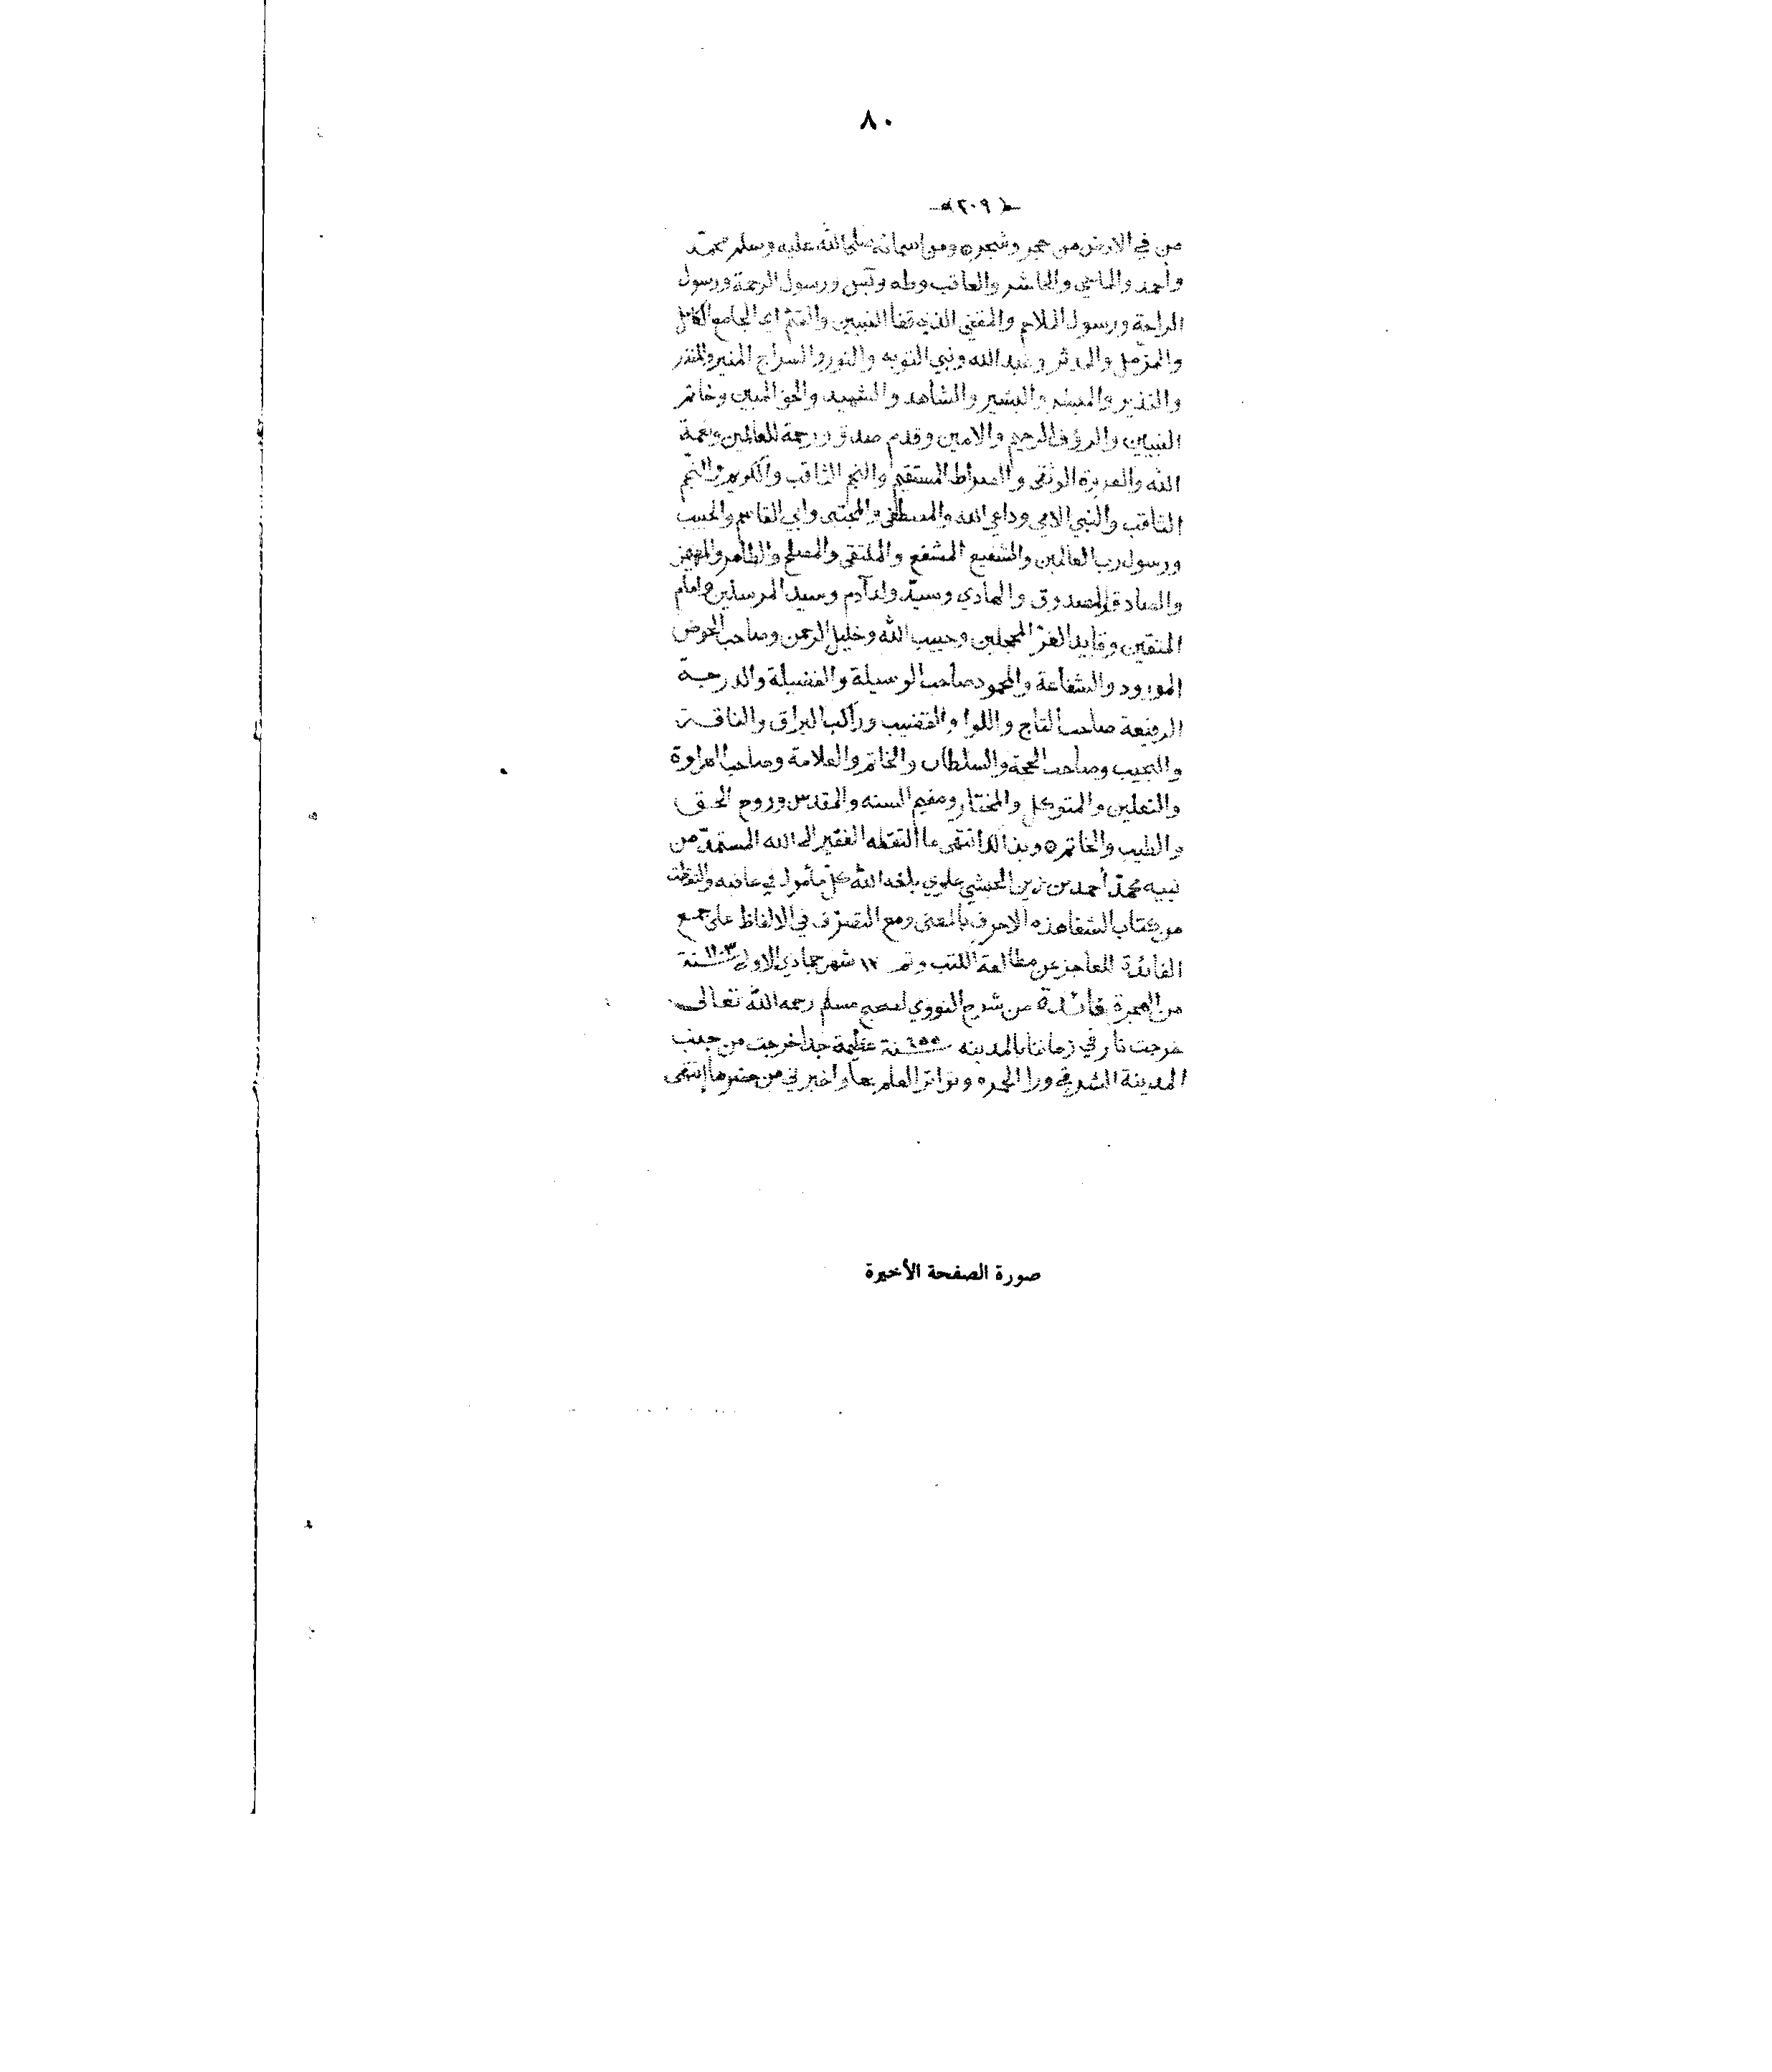 ٨٠
﴿٢٠٩﴾
من في الارض من حجر وشجر ومن اسمائه صلى الله عليه وسلم محمد
وأحمد والماحي والحاشر والعاقب وطه ويس ورسول الرحمة ورسول
الراحة ورسول الملاحم والمقفي الذي قفا النبيين والقثم اي الجامع الكامل
والمزمل والمدثر وعبد الله ونبي التوبه والنور والسراج المنير والمنذر
والنذير والمبشر والبشير والشاهد والشهيد والحق المبين وخاتم
النبيين والرؤف الرحيم والامين وقدم صدق ورحمة للعالمين ونعمة
الله والعروة الوثقى والصراط المستقيم والنجم الثاقب والكريم والنجم
الثاقب والنبي الامي وداعي الله والمصطفى والمجتبى وابي القاسم والحبيب
ورسول رب العالمين والشفيع المشفع والمتقى والمصلح والطاهر والمهيمن
والصادق والمصدوق والهادي وسيد ولد آدم وسيد المرسلين وامام
المتقين وقايد الغر المحجلين وحبيب الله وخليل الرحمن وصاحب الحوض
المورود والشفاعة والمحمود صاحب الوسيلة والفضيلة والدرجة
الرفيعة صاحب التاج واللوا والقضيب وراكب البراق والناقة
والنجيب وصاحب الحجة والسلطان والخاتم والعلامة وصاحب الهراوة
والنعلين والمتوكل والمختار ومقيم السنه والمقدس وروح الحق
والطيب والخاتم ٥ وبذالك انتهى ما التقطه الفقير الى الله المستمد من
نبيه محمد أحمد بن زين الحبشي علوي بلغه الله كل مأمول في عافيه والتقطت
من كتاب الشفا هذه الاحرف بالمعنى ومع التصرف في الالفاظ على جمع
الفائدة للعاجز عن مطالعة الكتب وتم ١٢ شهر جمادي الاولى سنة ١١٠٣
من الهجرة فائدة من شرح النووي لصحيح مسلم رحمه الله تعالى
خرجت نار في زماننا بالمدينه سنة ٦٥٥ عظيمة جدا خرجت من جنب
المدينة الشرقي ورا الحره وتواتر العلم بها واخبرني من حضرها انتهى
صورة الصفحة الأخيرة